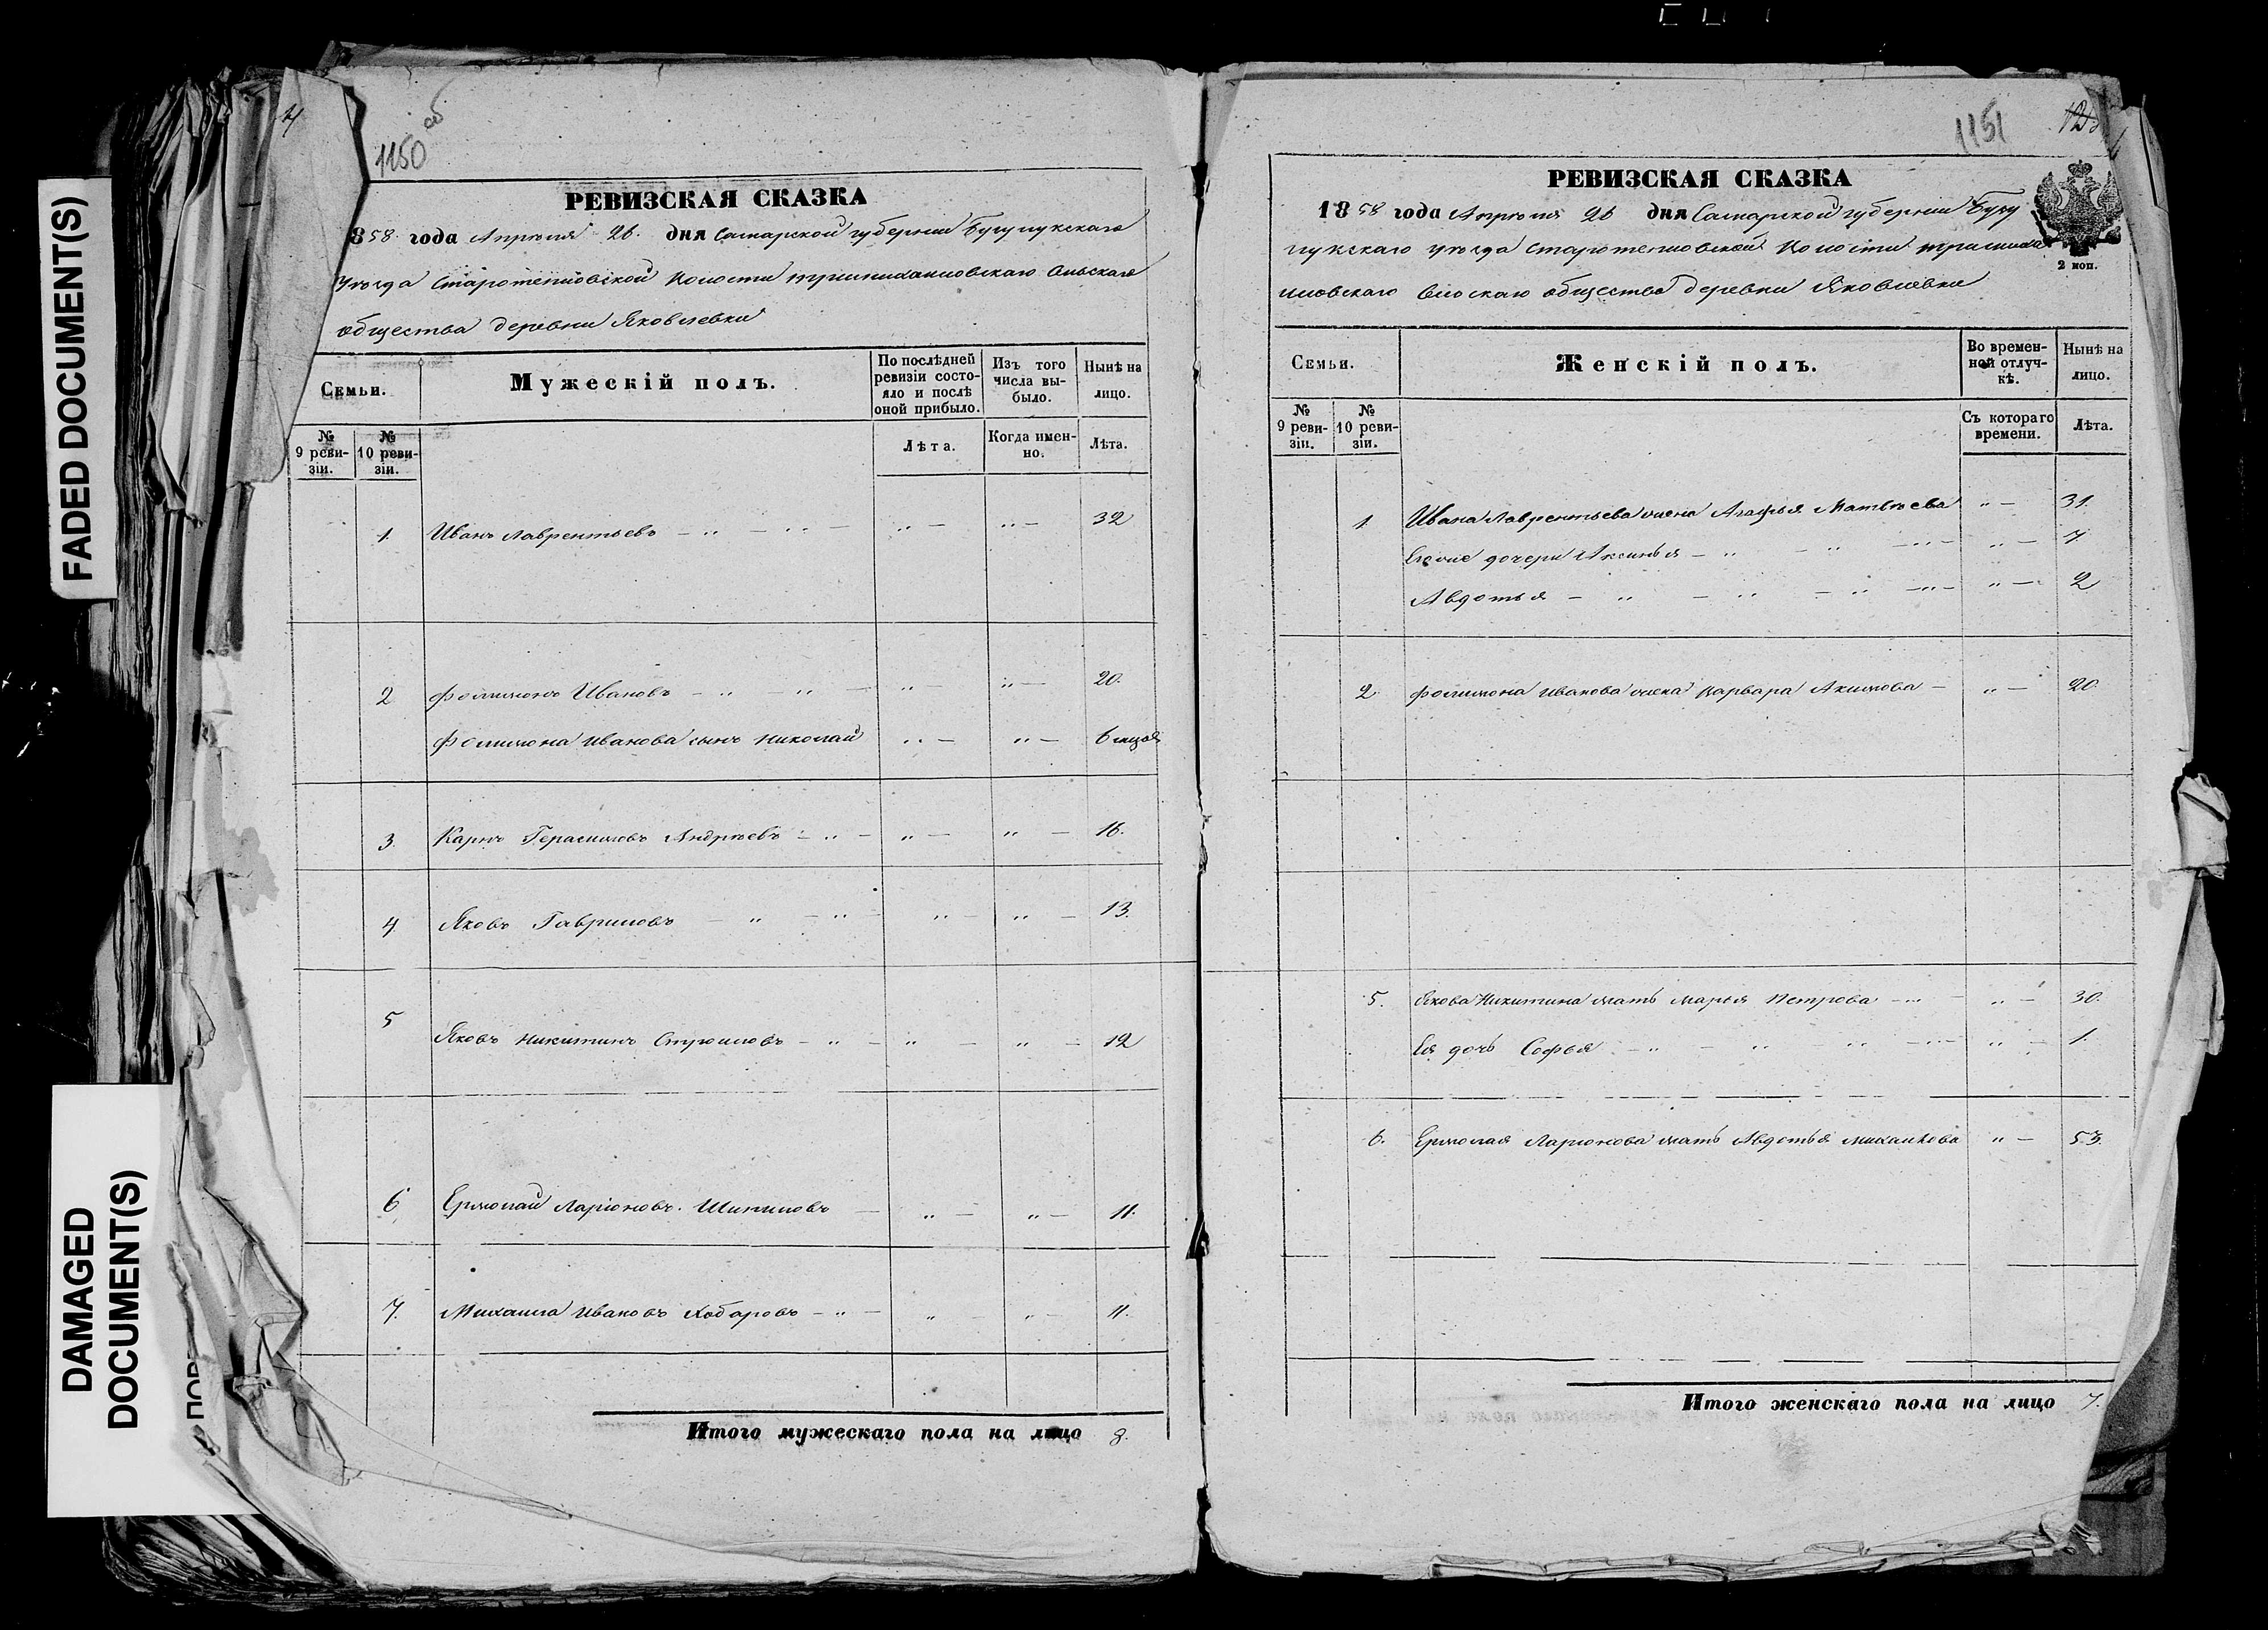 FADED DOCUMENT(S)
DAMAGED
DOCUMENT(S)
1150 об
РЕВИЗСКАЯ СКАЗКА
858. года Апрѣля 26. дня Самарской губерніи Бугульскаго
уѣзда Старотепловской Волости
общества деревни Яковлевки
Семьи.
Мужескій полъ.
По послѣдней ревизіи состояло и послѣ оной прибыло.
Изъ того числа выбыло.
Нынѣ на лицо.
№ 9 ревизіи.
№ 10 ревизіи.
Лѣта.
Когда именно.
Лѣта.
1. Иванъ Лаврентьевъ — „ — „ — „ — „ — 32
2 Филимонъ Ивановъ — „ — „ — „ „ — 20.
Филимона Иванова сынъ Николай „ — „ — 6 мцовъ
3. Карпъ Герасимовъ Андрѣевъ — „ — „ — „ — 16.
4 Яковъ Гавриловъ — „ — „ — „ — „ — 13.
5 Яковъ Никитинъ — „ — „ — „ — 12
6 Ермолай Ларіоновъ. Шипиловъ — „ — „ — 11.
7. Михаила Ивановъ Хобаровъ — „ — „ — „ — 11.
Итого мужескаго пола на лицо 8.
1151
РЕВИЗСКАЯ СКАЗКА
1858 года Апрѣля 26 дня Самарской губерніи Бузу
лукскаго уѣзда Старотепловской Волости
общества деревни Яковлевки
2 коп.
Семьи.
Женскій полъ.
Во временной отлучкѣ.
Нынѣ на лицо.
№ 9 ревизіи.
№ 10 ревизіи.
Съ котораго времени.
Лѣта.
1. Ивана Лаврентьева жена Агафья Матвѣева „ — 31.
Его же дочери Аксинья — „ — „ — „ — „ — 7
Авдотья — „ — „ — „ — „ — „ — 2
2. Филимона Иванова жена Варвара Акимова — „ — 20.
5. Якова Никитина мать Марья Петрова — „ — „ — 30.
Ея дочь Софья — „ — „ „ — „ — „ — 1.
6. Ермолая Ларіонова мать Авдотья Михайлова „ — 53.
Итого женскаго пола на лицо 7.